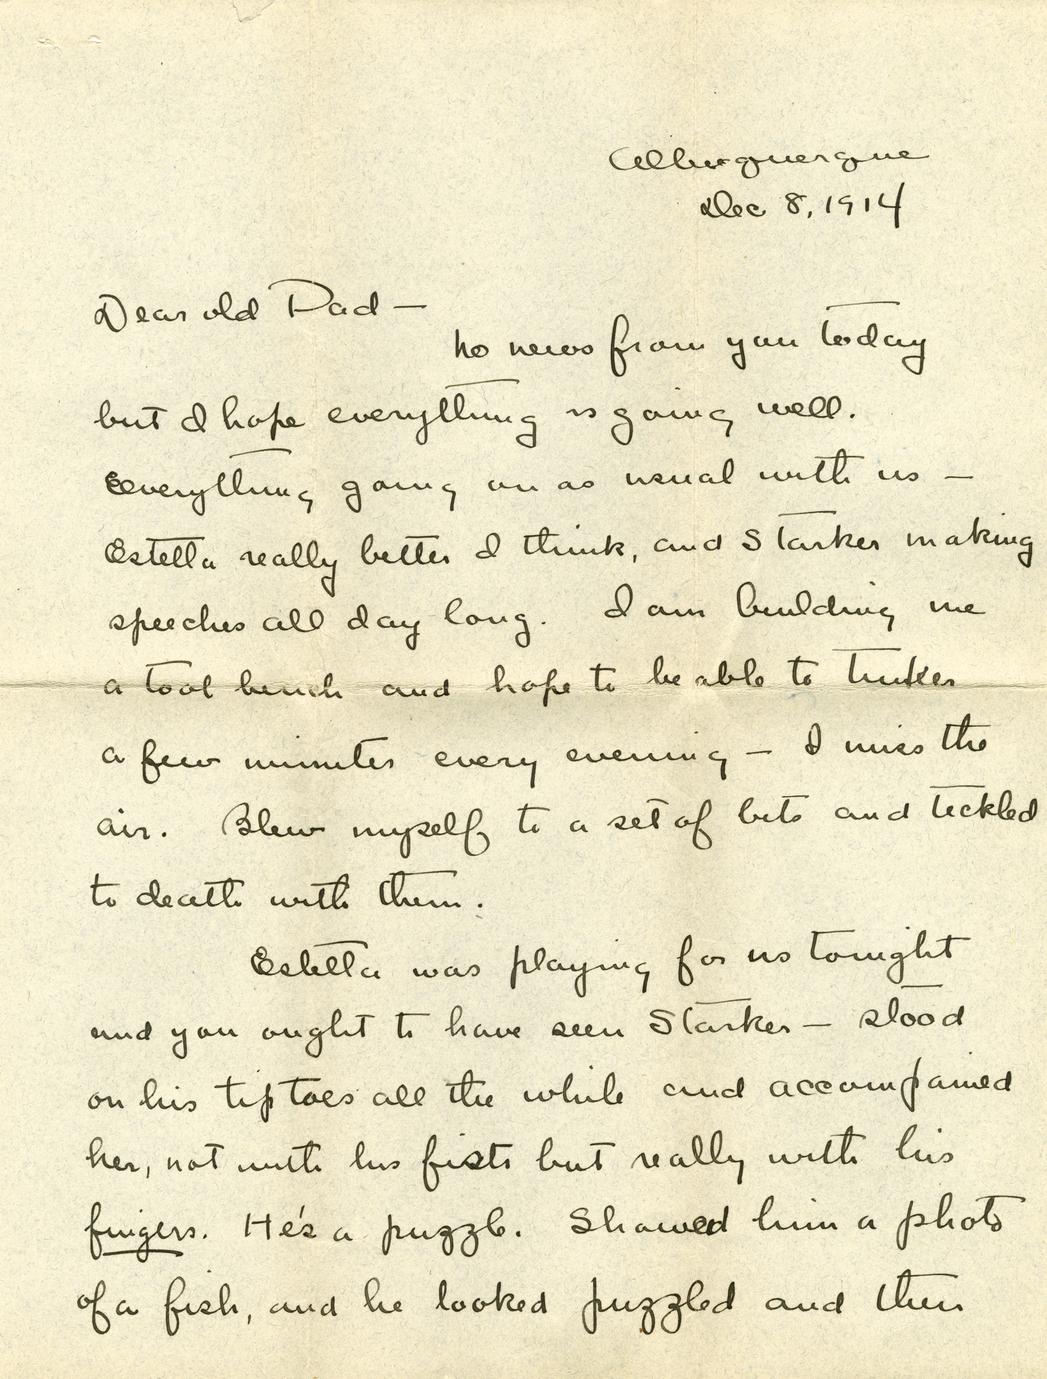 Albuquerque
Dec 8, 1914
Dear old Dad —
No news from you today
but I hope everything is going well.
Everything going on as usual with us —
Estella really better I think, and Starker making
speeches all day long. I am building me
a tool bench and hope to be able to tinker
a few minutes every evening — I miss the
air. Blew myself to a set of bits and tickled
to death with them.
Estella was playing for us tonight
and you ought to have seen Starker — stood
on his tip toes all the while and accompained
her, not with his fists but really with his
fingers. He's a puzzle. Showed him a photo
of a fish, and he looked puzzled and then